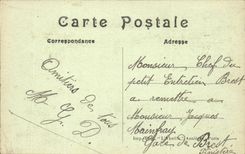 Carte Postale
Correspondance
Adresse
Amitiés de tous
M G D
Monsieur Chef du
petit Entretien Brest
a remettre a
Monsieur Jacques
Mainfray
Gare de Brest
Finistère